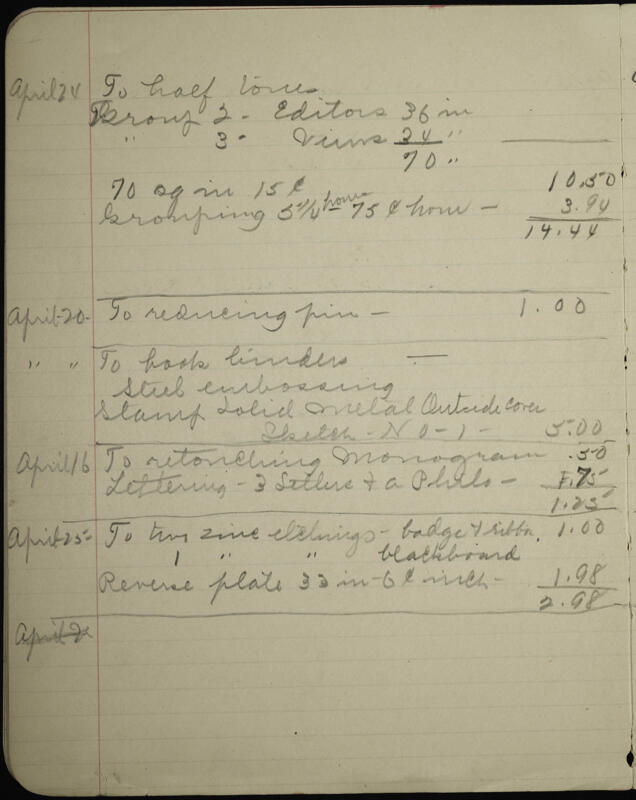 April 24 To half tones
Group 2 - Editors 36 in
" 3 - Views 34 "
70 "
70 sq in 15 ¢ 10.50
Grouping 5 1/4 hours - 75 ¢ hour - 3.94
14.44
April-20- To reducing pin - 1.00
" " To book binders -
Steel embossing
Stamp Solid Metal Outside cover
Sketch - No-1- 5.00
April 16 To retouching Monogram .50
Lettering - 3 & a Philo - .75
1.25
April-25- To two zinc etchings - badge & ribbn. 1.00
1 " " blackboard
Reverse plate 33 in - 6 ¢ inch - 1.98
2.98
April 2